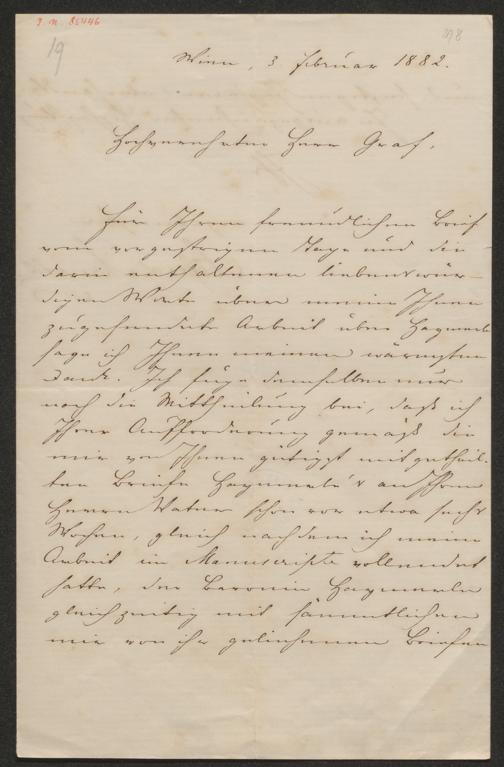 J. N. 85446
19
Wien, 3 Februar 1882.
Hochverehrter Herr Graf,
Für Ihren freundlichen Brief
vom vorgestrigen Tage und die
darin enthaltenen liebenswür-
digen Worte über meine Ihnen
zugesendete Arbeit über Haymerle
sage ich Ihnen meinen wärmsten
Dank. Ich füge demselben nur
noch die Mittheilung bei, daß ich
Ihrer Aufforderung gemäß die
mir von Ihnen gütigst mitgetheil-
ten Briefe Haymerle's an Ihren
Herrn Vater schon vor etwa sechs
Wochen, gleich nachdem ich meine
Arbeit im Manuscripte vollendet
hatte, der Baronin Haymerle
gleichzeitig mit sämmtlichen
mir von ihr geliehenen Briefen